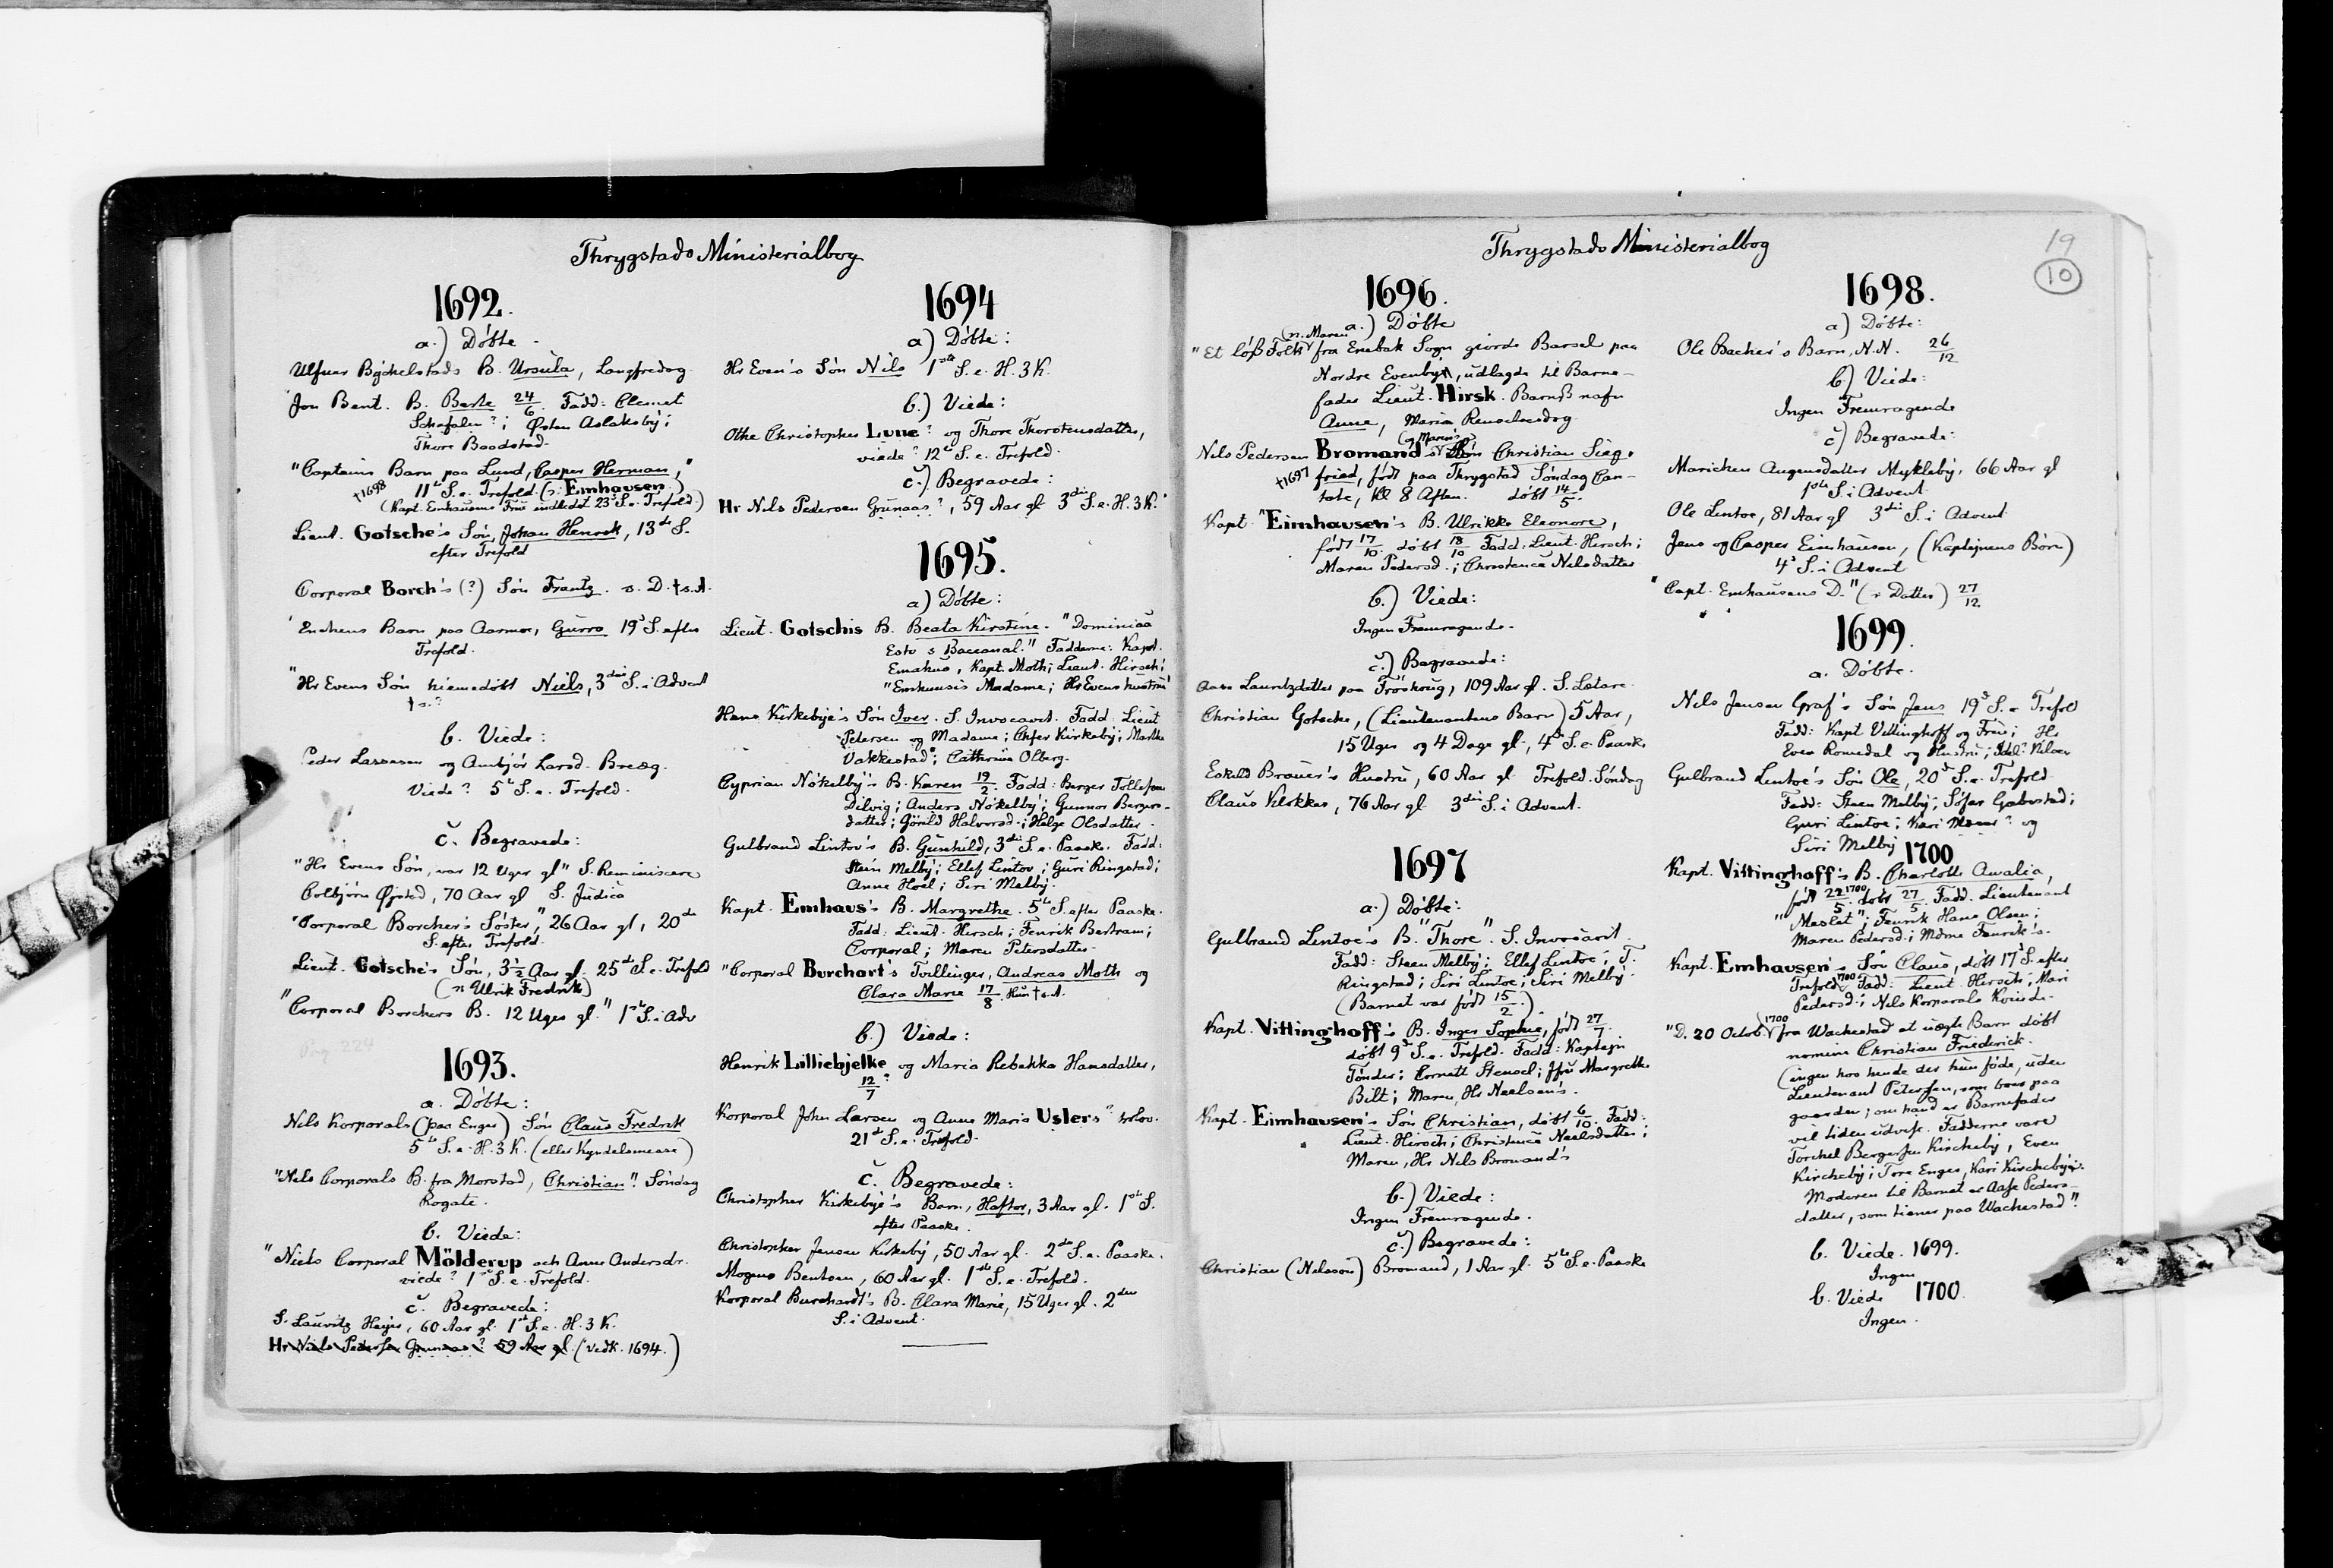 Thrygstads Ministerialbog
1692.
a.) Döbte
Ulfuer Byckelstads B. Ursula, Langfredag
Jon Bent. B. Berte 24/6. Fadd: Clemet
Schafalen?; Östen Aslaksby;
Thore Baadstad.
"Captains Barn paa Lund, Casper Herman,"
†1698 11te S. e. Trefold. (ɔ: Emhausen.)
(Kapt. Emhausens Frue indledet 23d S. e. Trefold.)
Lieut. Gotsche's Sön, Johan Henrek, 13de S.
efter Trefold
Corporal Borch's (?) Sön Frantz. s. D. † s. A.
Endrens Barn paa Aarmoe, Gurro 19d S. efter
Trefold.
"Hr Evens Sön hiemedöbt Niels, 3die S. i Advent
† s. ?
b. Viede:
Peder Lassesen og Ambjör Larsd. Breæg.
Viede? 5te S. e. Trefold.
c. Begravede:
"Hr Evens Sön, var 12 Uger gl" S. Reminiscere
Colbjörn Öystad, 70 Aar gl S. Judica
"Corporal Borchers Söster", 26 Aar gl, 20de
S. efter Trefold.
Lieut. Gotsche's Sön, 3½ Aar gl. 25de S. e. Trefold
(ɔ: Ulrik Fredrik)
"Corporal Borchers B. 12 Uger gl." 1ste S. i Adv
Pag: 224
1693.
a. Döbte:
Nils Korporals (paa Enger) Sön Claus Fredrik
5te S. e. H. 3 K. (eller Kyndelsmesse)
"Nels Corporals B. fra Morstad, Christian". Söndag
Rogate.
b. Viede:
"Niels Corporal Mölderup och Anne Andersdr.
viede? 1ste S. e. Trefold.
c. Begravede:
S. Lauritz Heyer, 60 Aar gl. 1ste S. e. H. 3 K.
Hr Niels Pedersen Grunaas? 59 Aar gl. (vedk. 1694.)
1694
a) Döbte:
Hr Even's Sön Nils 1ste S. e. H. 3 K.
b.) Viede:
Othe Christopher Lune? og Thore Thorstensdatter,
viede? 12te S. e. Trefold.
c.) Begravede:
Hr Nils Pedersen Grunaas?, 59 Aar gl 3die S. e. H. 3 K."
1695.
a) Döbte:
Lieut. Gotschis B. Beata Kirstine. "Dominica
Esto s Baccanal." Fadderne: Kapt.
Emahus, Kapt. Moth; Lieut. Hirsch;
"Emhuusis Madame; Hr Evens hustru"
Hans Kirkebye's Sön Iver. S. Invocavit. Fadd: Lieut
Petersen og Madame; Chfer Kirkeby; Marthe
Vakkestad; Cathrine Olberg.
Cyprian Nökelby's B. Karen 19/2. Fadd: Berger Tollefsen
Dilvig; Anders Nökelby; Gunnor Bergers-
datter; Görild Halvorsd.; Helge Olsdatter.
Gulbrand Lintov's B. Gunhild, 3die S. e. Paaske. Fadd:
Stein Melby; Ellef Lintov; Guri Ringstad;
Anne Hoel; Siri Melby.
Kapt. Emhaus's B. Margrethe. 5te S. efter Paaske.
Fadd: Lieut. Hersch; Fenrik Bertram;
Corporal; Maren Petersdatter.
"Corporal Burchart's Tvillinger, Andreas Moth og
Clara Marie 17/8. Hun † s. A.
b.) Viede:
Henrik Lilliebjelke og Maria Rebekka Hansdatter,
12/7?
Korporal John Larsen og Anne Maria Uslers? trolov.
21de S. e. Trefold.
c. Begravede:
Christopher Kirkebye's Barn, Haftor, 3 Aar gl. 1ste S.
efter Paaske.
Christopher Jensen Kirkeby, 50 Aar gl. 2den S. e. Paaske.
Mogens Bentsen, 60 Aar gl. 1ste S. e. Trefold.
Korporal Burchardt's B. Clara Marie, 15 Uger gl. 2den
S. i Advent.
Thrygstads Ministerialbog
19
10
1696.
a.) Döbte
(n. Maren
"Et löß Folk fra Enebak Sogn giorde Barsel paa
Nordre Evenby", udlagde til Barne-
fader Lieut. Hirsk. Barnß nafn
Anne, Maria Renselsesdag.
(og Maren's)
Nils Pedersen Bromand's Sön Christian Sieg-
†1697 fried, födt paa Thrygstad Söndag Can-
tate, Kl 8 Aften. döbt 14/5.
Kapt. "Eimhausen's B. Ulrikke Eleonore,
födt 17/10. döbt 18/10 Fadd: Lieut. Hirsch;
Maren Pedersd.; Christence Nilsdatter
b.) Viede:
Ingen Fremragende.
c.) Begravede:
Aase Lauritzdatter paa Fröshoug, 109 Aar gl. S. Lætare.
Christian Gotsche, (Lieutenantens Barn) 5 Aar,
15 Uger og 4 Dage gl., 4de S. e. Paaske
Eskild Brauer's Hustru, 60 Aar gl. Trefold. Söndag
Claus Klokker, 76 Aar gl 3die S. i Advent.
1697
a.) Döbte:
Gulbrand Lentoe's B. "Thore". S. Invocavit.
Fadd: Steen Melby; Ellef Lentoe; T.
Ringstad; Siri Lentoe; Siri Melby.
(Barnet var födt 15/2.)
Kapt. Vittinghoff's B. Inger Sophie, födt 27/7.
döbt 9d S. e. Trefold. Fadd: Kaptejn
Tönder; Cornett Stensel; Jfru Margrethe
Bilt; Maren, Hr Neelsen's.
Kapt. Eimhausen's Sön Christian, döbt 6/10. Fadd:
Lieut. Hirsch; Christence Neelsdatter;
Maren, Hr Nels Bromand's
b.) Viede:
Ingen Fremragende.
c.) Begravede:
Christian (Nelsson) Bromand, 1 Aar gl. 5te S. e. Paaske
1698.
a) Döbte:
Ole Bacher's Barn, N.N. 26/12
b.) Viede:
Ingen Fremragende
c) Begravede:
Marichen Augensdatter Mykleby, 66 Aar gl
1ste S. i Advent.
Ole Lentoe, 81 Aar gl 3die S. i Advent
Jens og Casper Eimhausen, (Kaptejnens Börn)
4d S. i Advent
"Capt. Emhausens D." (ɔ: Datter) 27/12
1699.
a. Döbte.
Nils Jensen Graf's Sön Jens 19d S. e Trefold
Fadd: Kapt Vittinghoff og Frue; Hr
Even Romedal og Hustru; Idel? Kilser
Gulbrand Lentoe's Sön Ole, 20d S. e. Trefold
Fadd: Steen Melby; Söfer Gabestad;
Guri Lintoe; Kari Moser? og
Siri Melby
1700
Kapt. Vittinghoff's B. Charlotte Amalia,
födt 22/5 1700 döbt 27/5. Fadd. Lieutenant
"Meslet"; Fenrik Hans Olsen;
Maren Pedersd.; Mdme Fenrik's.
Kapt. Emhausen's Sön Claus, döbt 17d S. efter
Trefold 1700 Fadd: Lieut. Hersch; Mari
Pedersd.; Nils Korporals Kvinde.
"D. 20 Octob. 1700 fra Wachestad et uægte Barn döbt
nomine Christian Friederick.
(ingen hos hende der hun föde, uden
Lieutenant Peterssen, som boer paa
gaarden; om hand er Barnefader
vil tiden udvise. Fadderne vare
Torchel Bergersen Kircheby, Even
Kircheby; Tore Enger, Kari Kircheby.
Moderen til Barnet er Aase Peders-
datter, som tiener paa Wachestad".
b. Viede. 1699.
Ingen
b. Viede 1700.
Ingen.